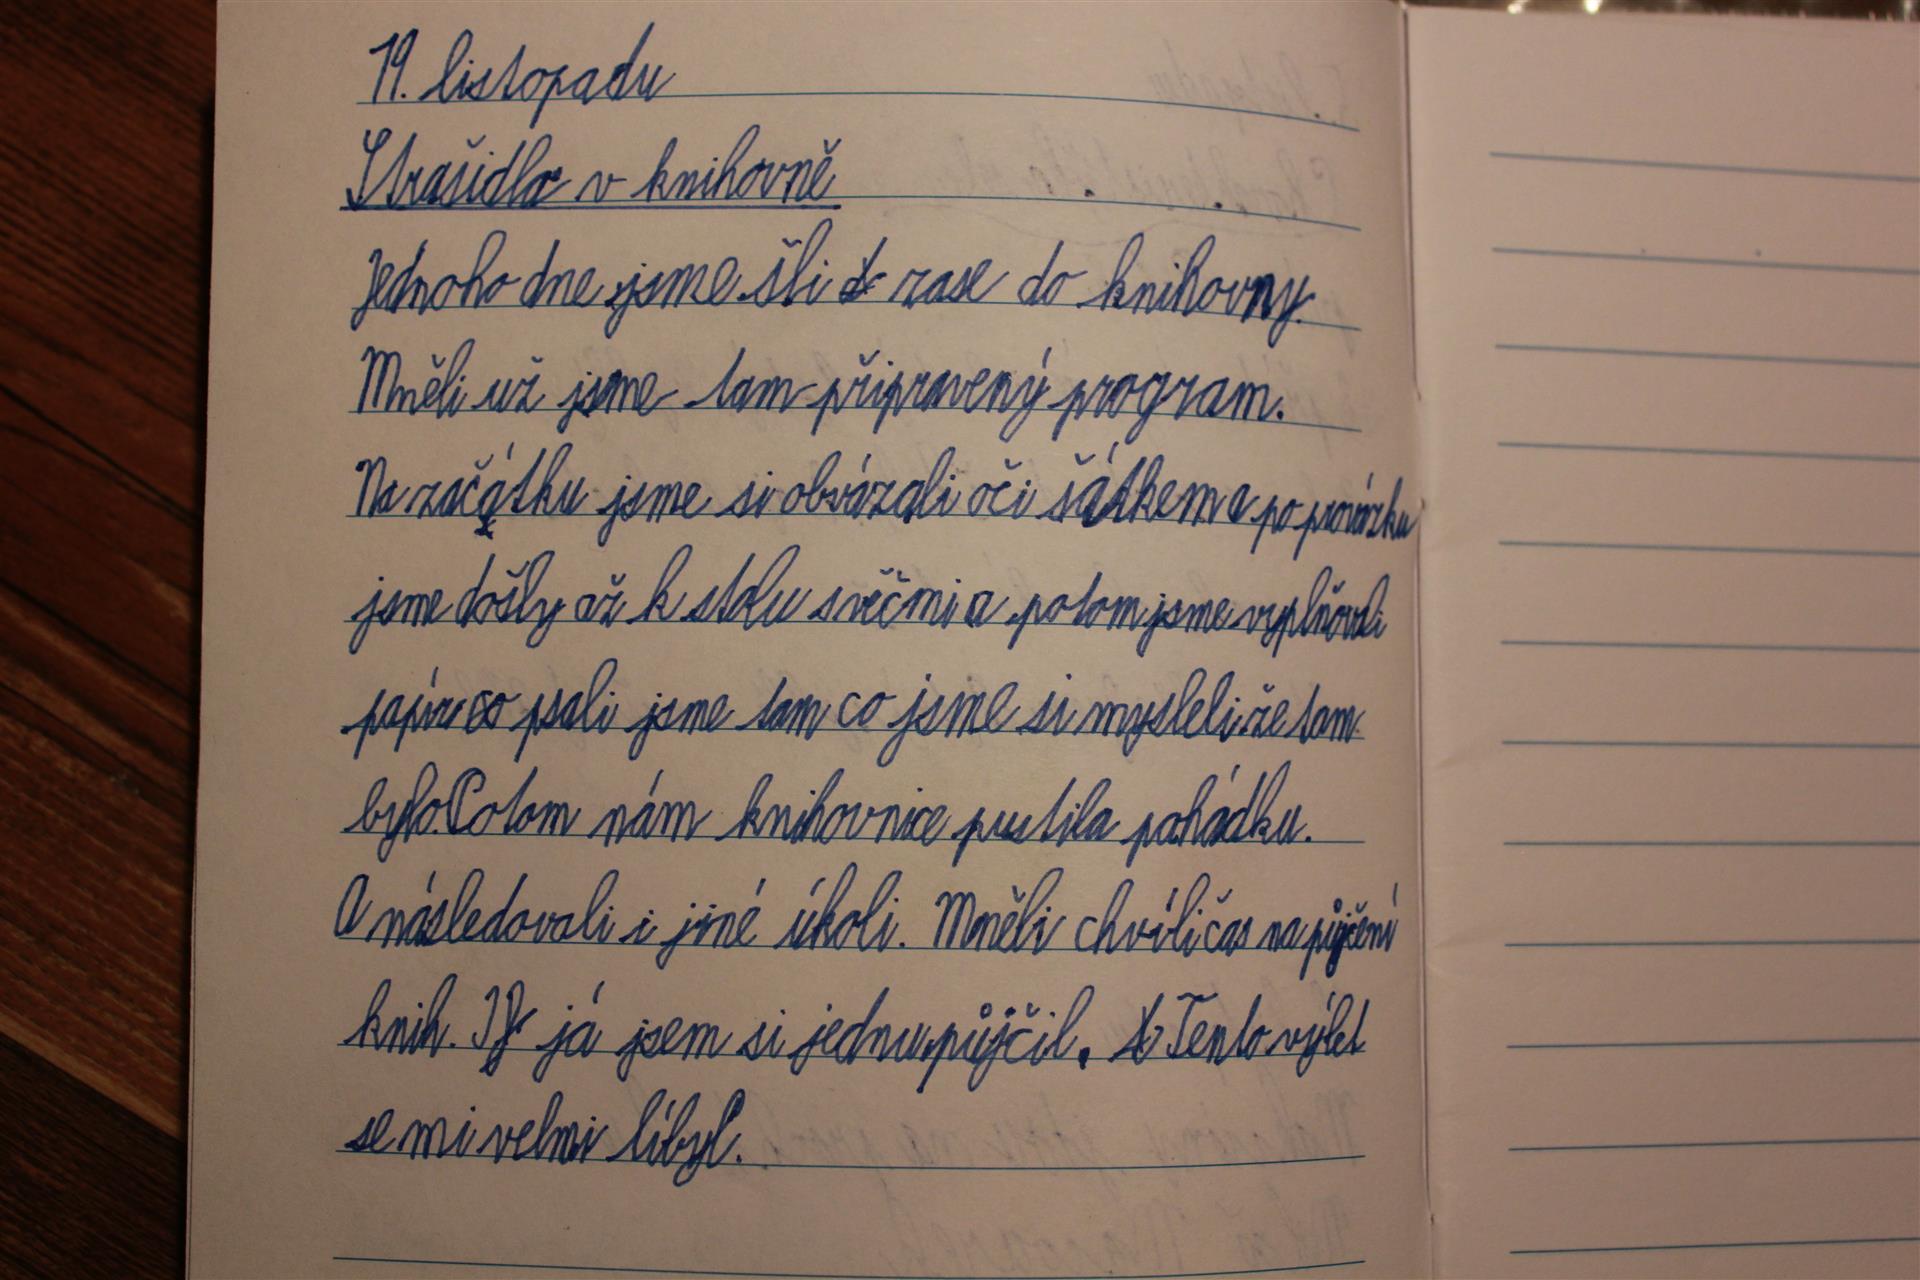 19. listopadu
Strašidla v knihovně
Jednoho dne jsme šli zase do knihovny.
Mněli už jsme tam připravený program.
Na začátku jsme si obvázali oči šátkem a po provázku
jsme došly až k stolu svěčmi a potom jsme vyplňovali
papír co psali jsme tam co jsme si mysleli že tam
bylo. Potom nám knihovnice pustila pohádku.
A následovali i jiné úkoli. Mněli chvíli čas na půjčení
knih. I já jsem si jednu půjčil. Tento výlet
se mi velmi líbyl.